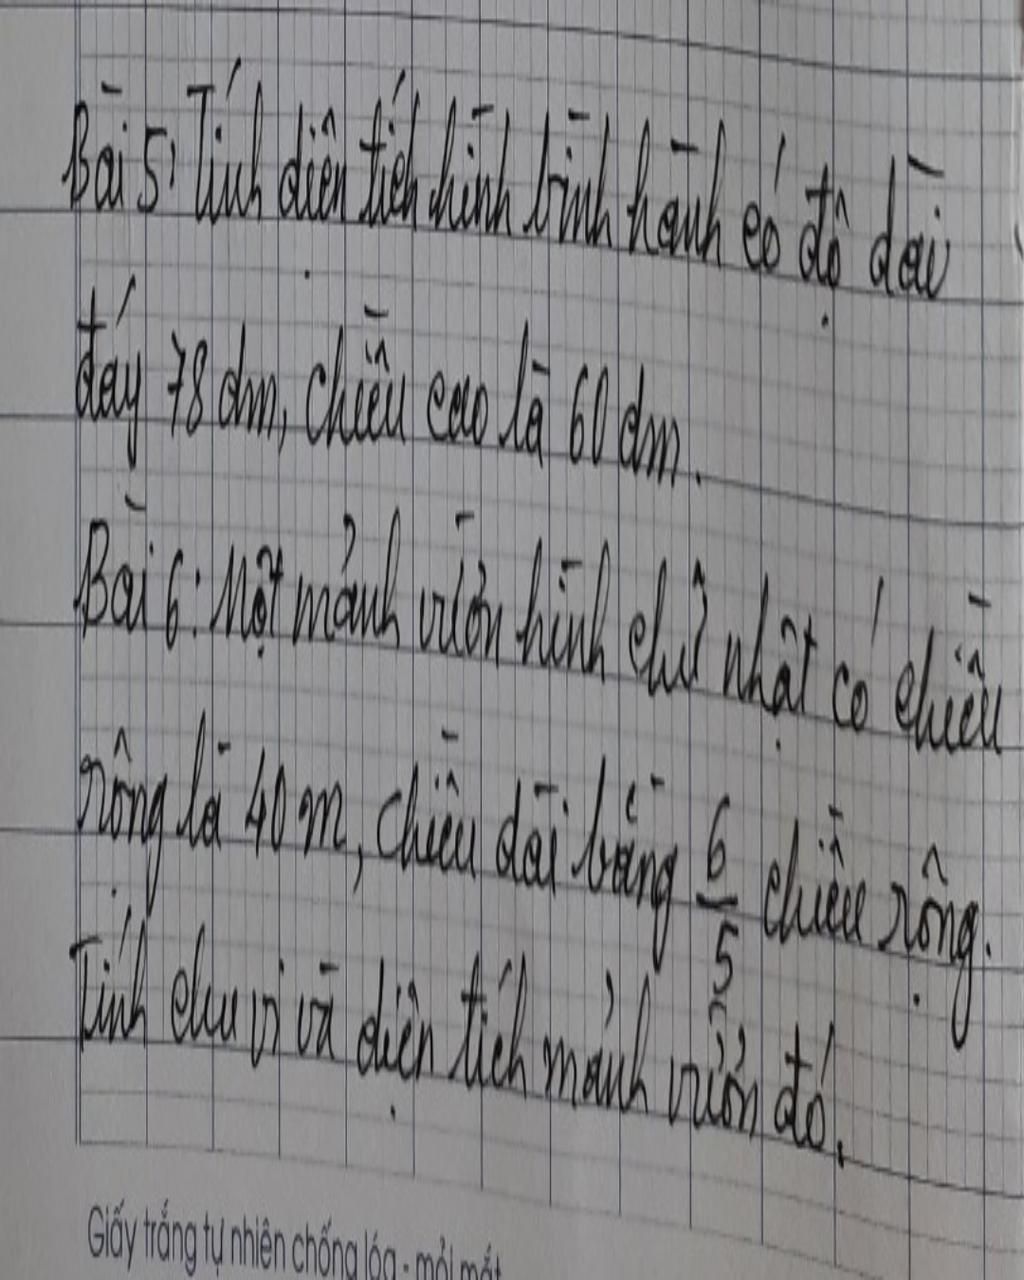 Bài 5: Tính diện tích hình bình hành có độ dài
đáy 78 dm, chiều cao là 60 dm.
Bài 6: Một mảnh vườn hình chữ nhật có chiều
rộng là 40 m, chiều dài bằng 6/5 chiều rộng.
Tính chu vi và diện tích mảnh vườn đó.
Giấy trắng tự nhiên chống lóa - mỏi mắt